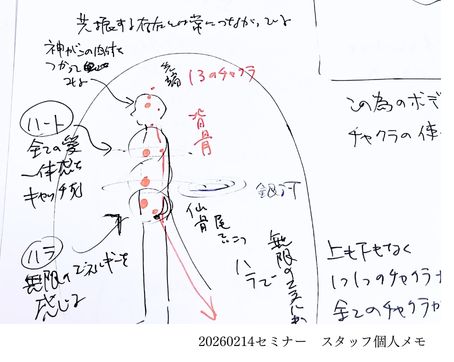 共振する存在との常につながっているよ
神がらの肉体を
つかって
13のチャクラ
背骨
ハート
全ての愛
一体感を
キャッチする
銀河
仙骨
尾
ハラ
無限のエネルギーを
感じる
ハラで
無限のエネルギー
この為のボデ
チャクラの体
上も下もなく
1つ1つのチャクラ
全てのチャクラが
20260214セミナー スタッフ個人メモ